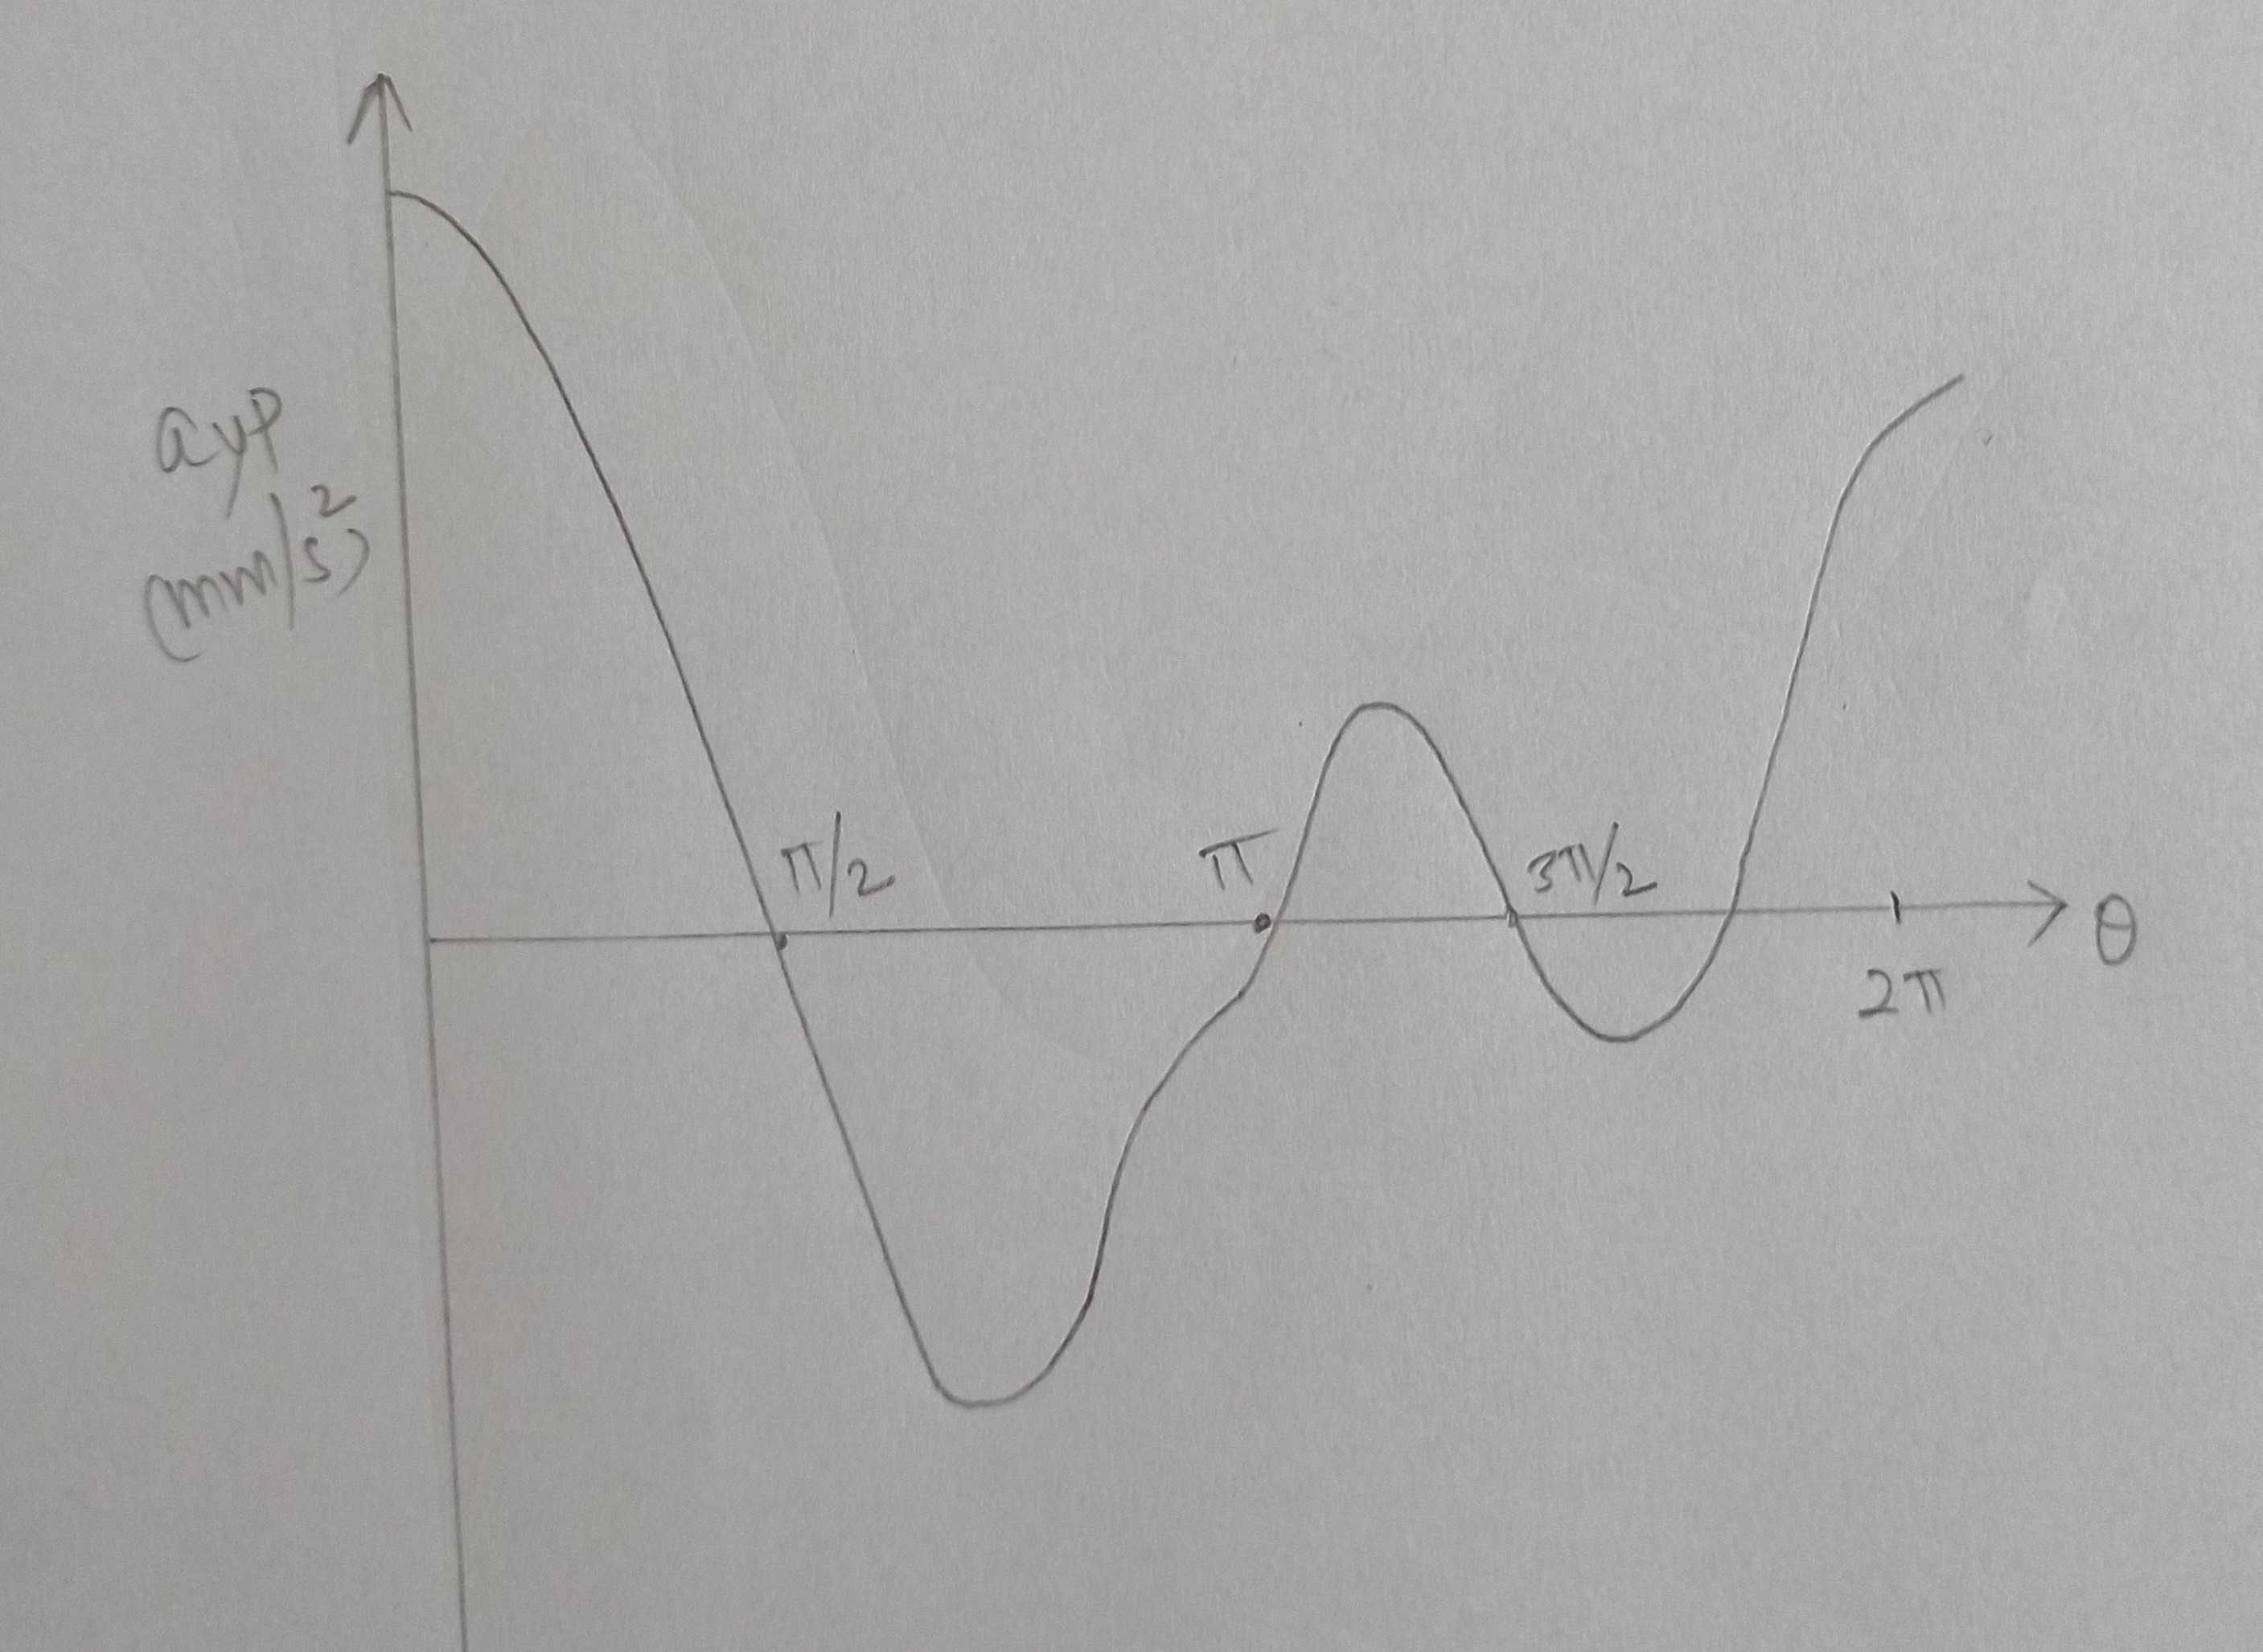 ayp
(mm/s²)
π/2
π
3π/2
2π
θ